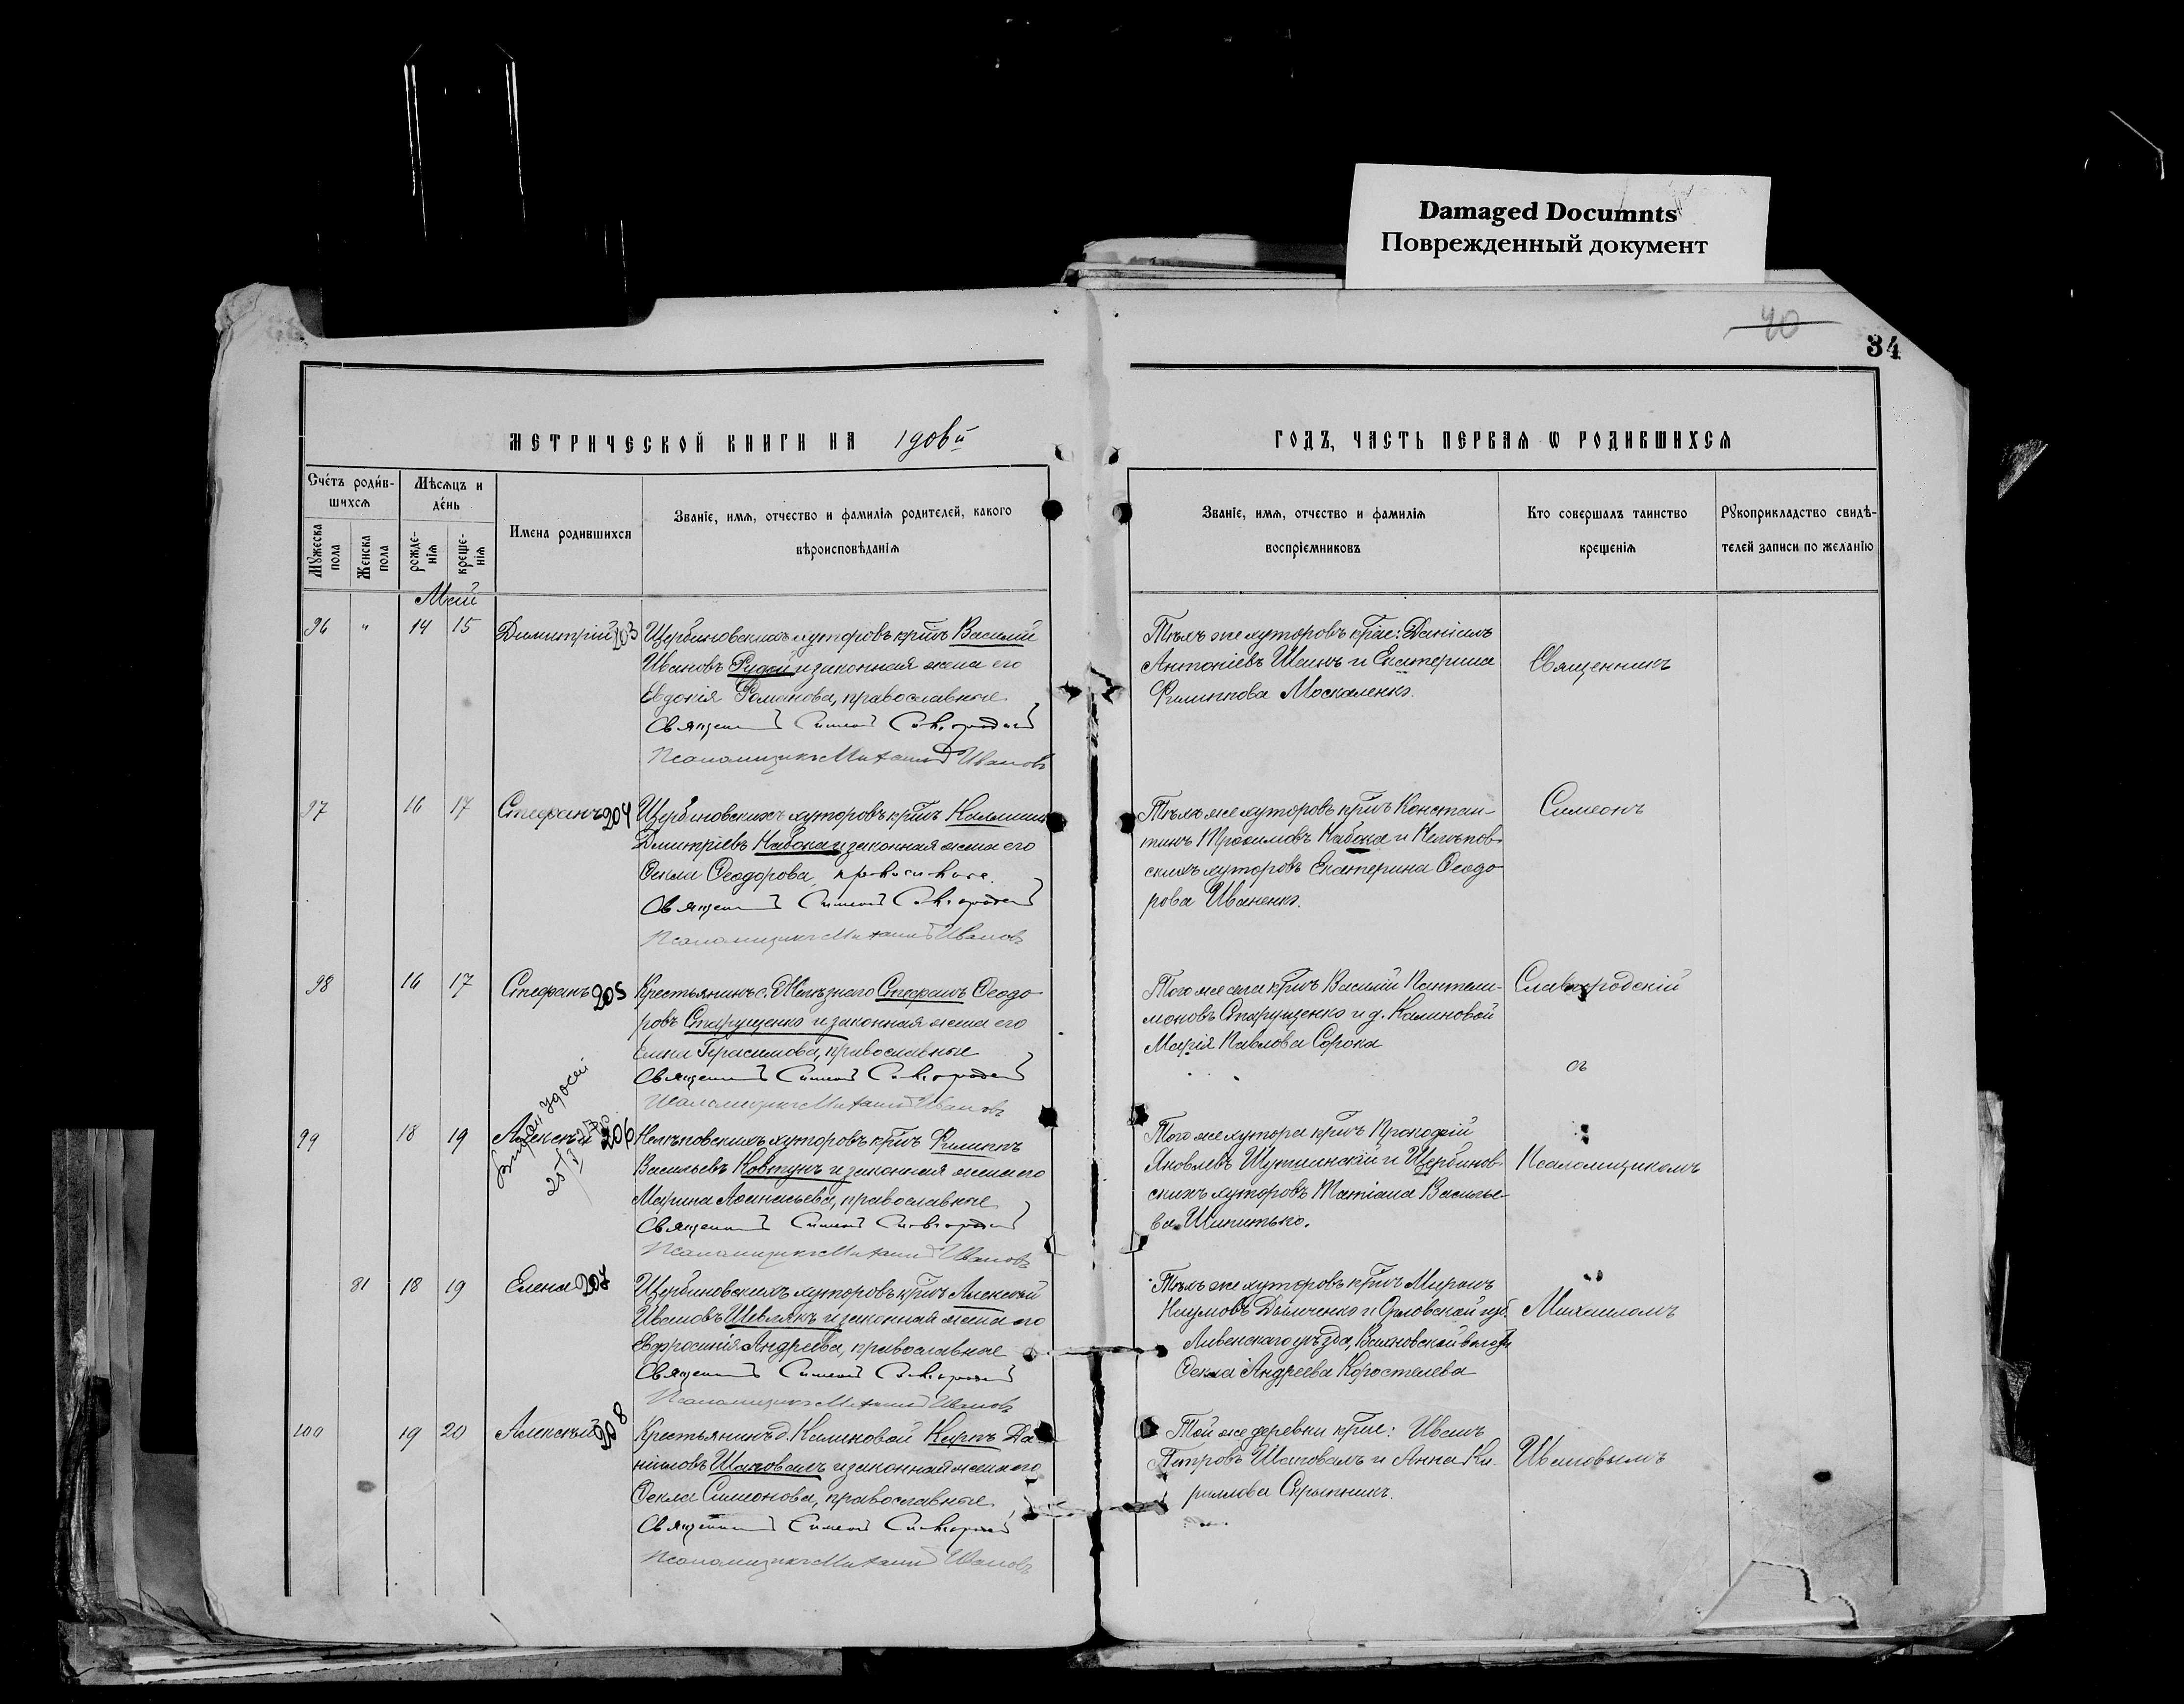 Damaged Documnts
Поврежденный документ
40
34
МЕТРИЧЕСКОЙ КНИГИ НА 190
ГОДЪ, ЧАСТЬ ПЕРВАѦ Ѡ РОДИВШИХСѦ
Счéтъ родѝв-
шихсѧ
Мѣсѧцъ и
дéнь
Мꙋжеска
пола
Женска
пола
рожде-
нїѧ
креще-
нїѧ
Имена родившихсѧ
Званїе, имѧ, отчество и фамилїѧ родителей, какого
вѣроисповѣданїѧ
Званїе, имѧ, отчество и фамилїѧ
воспрїемниковъ
Кто совершалъ таинство
крещенїѧ
Рꙋкоприкладство свидѣ-
телей записи по желанїю
Май
96 " 14 15 Димитрій 203
Щербиновскихъ хуторовъ кр-нъ Василій
Ивановъ Рудой и законная жена его
Евдокія Романова, православные
Священникъ Симеонъ Славгородскій
Псаломщикъ Михаилъ Ивановъ
Тѣхъ же хуторовъ кр-не: Даніилъ
Антоніевъ и Екатерина
Филиппова Москаленко.
Священникъ
97 16 17 Стефанъ 204
Щербиновскихъ хуторовъ кр-нъ
Димитріевъ Набока и законная жена его
Ѳекла Ѳеодорова,
Священникъ Симеонъ Славгородскій
Псаломщикъ Михаилъ Ивановъ
Тѣхъ же хуторовъ кр-нъ Констан-
тинъ Набока и Нелѣпов-
скихъ хуторовъ Екатерина Ѳеодо-
рова Иваненко.
Симеонъ
98 16 17 Стефанъ 205
Крестьянинъ с. Желѣзнаго Стефанъ Ѳеодо-
ровъ Старущенко и законная жена его
Елена Герасимова, православные
Священникъ Симеонъ Славгородскій
Псаломщикъ Михаилъ Ивановъ
Того же села кр-нъ Василій Пантели-
моновъ Старущенко и д. Калиновой
Марія Павлова Сорока
Славгородскій
съ
99 18 19 Алексѣй 206
Нелѣповскихъ хуторовъ кр-нъ Филиппъ
Васильевъ Ковтунъ и законная жена его
Марина Аѳанасьева, православные
Священникъ Симеонъ Славгородскій
Псаломщикъ Михаилъ Ивановъ
Того же хутора кр-нъ Прокофій
Яковлевъ и Щербинов-
скихъ хуторовъ Татіана Василье-
ва Шипитько.
Псаломщикомъ
81 18 19 Елена 207
Щербиновскихъ хуторовъ кр-нъ Алексѣй
Ивановъ Шевлякъ и законная жена его
Евфросинія Андреева, православные
Священникъ Симеонъ Славгородскій
Псаломщикъ Михаилъ Ивановъ
Тѣхъ же хуторовъ кр-нъ Миронъ
Наумовъ и Орловской губ.
Ливенскаго уѣзда,
Ѳекла Андреева Коростелева
Михаиломъ
100 19 20 Алексѣй 208
Крестьянинъ д. Калиновой Карпъ Да-
ниловъ Шаповалъ и законная жена его
Ѳекла Симеонова, православные
Священникъ Симеонъ Славгородскій
Псаломщикъ Михаилъ Ивановъ
Той же деревни кр-не: Иванъ
Петровъ Шаповалъ и Анна Ки-
риллова Скрыпникъ.
Ивановымъ